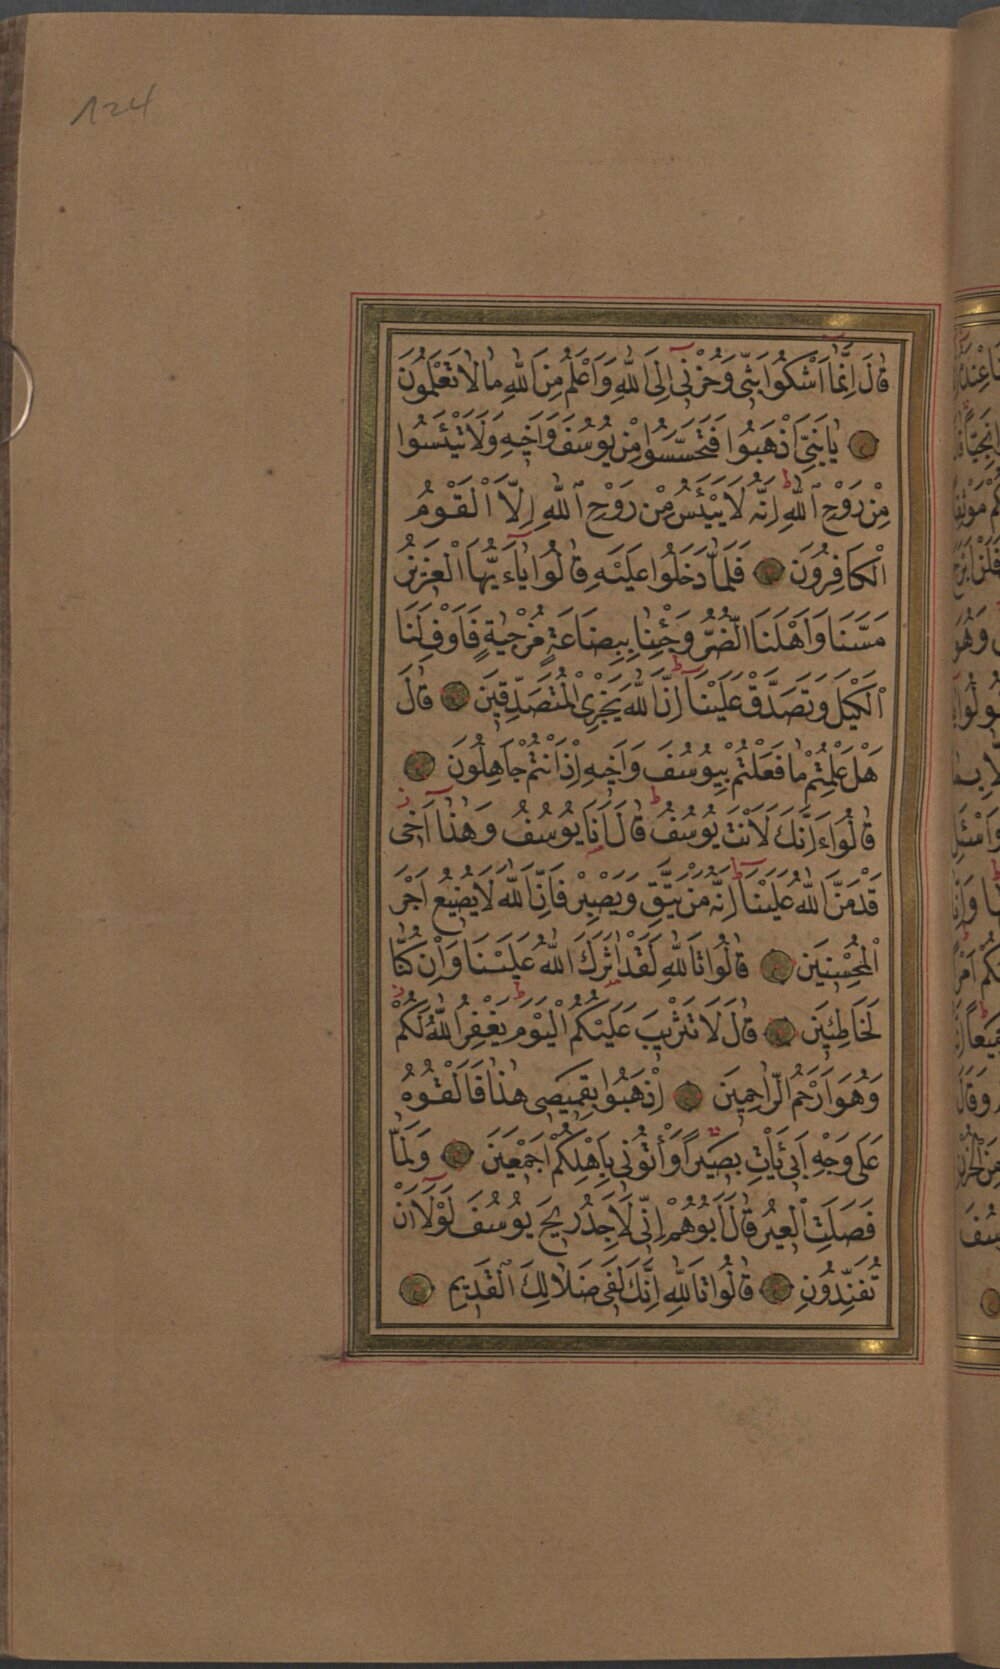 124
قَالَ اِنَّمَٓا اَشْكُوا بَثّٖي وَحُزْنٖٓي اِلَى اللّٰهِ وَاَعْلَمُ مِنَ اللّٰهِ مَا لَا تَعْلَمُونَ
يَا بَنِيَّ اذْهَبُوا فَتَحَسَّسُوا مِنْ يُوسُفَ وَاَخٖيهِ وَلَا تَيْئَسُوا
مِنْ رَوْحِ اللّٰهِ اِنَّهُ لَا يَيْئَسُ مِنْ رَوْحِ اللّٰهِ اِلَّا الْقَوْمُ
الْكَافِرُونَ فَلَمَّا دَخَلُوا عَلَيْهِ قَالُوا يَٓاءَيُّهَا الْعَزٖيزُ
مَسَّنَا وَاَهْلَنَا الضُّرُّ وَجِئْنَا بِبِضَاعَةٍ مُزْجٰيةٍ فَاَوْفِ لَنَا
الْكَيْلَ وَتَصَدَّقْ عَلَيْنَٓا اِنَّ اللّٰهَ يَجْزِي الْمُتَصَدِّقٖينَ قَالَ
هَلْ عَلِمْتُمْ مَا فَعَلْتُمْ بِيُوسُفَ وَاَخٖيهِ اِذْ اَنْتُمْ جَاهِلُونَ
قَالُٓوا ءَاِنَّكَ لَاَنْتَ يُوسُفُ قَالَ اَنَا يُوسُفُ وَهٰذَٓا اَخٖي
قَدْ مَنَّ اللّٰهُ عَلَيْنَٓا اِنَّهُ مَنْ يَتَّقِ وَيَصْبِرْ فَاِنَّ اللّٰهَ لَا يُضٖيعُ اَجْرَ
الْمُحْسِنٖينَ قَالُوا تَاللّٰهِ لَقَدْ اٰثَرَكَ اللّٰهُ عَلَيْنَا وَاِنْ كُنَّا
لَخَاطِئٖينَ قَالَ لَا تَثْرٖيبَ عَلَيْكُمُ الْيَوْمَ يَغْفِرُ اللّٰهُ لَكُمْ
وَهُوَ اَرْحَمُ الرَّاحِمٖينَ اِذْهَبُوا بِقَمٖيصٖي هٰذَا فَاَلْقُوهُ
عَلٰى وَجْهِ اَبٖي يَأْتِ بَصٖيرًا وَأْتُونٖي بِاَهْلِكُمْ اَجْمَعٖينَ وَلَمَّا
فَصَلَتِ الْعٖيرُ قَالَ اَبُوهُمْ اِنّٖي لَاَجِدُ رٖيحَ يُوسُفَ لَوْلَٓا اَنْ
تُفَنِّدُونِ قَالُوا تَاللّٰهِ اِنَّكَ لَفٖي ضَلَالِكَ الْقَدٖيمِ